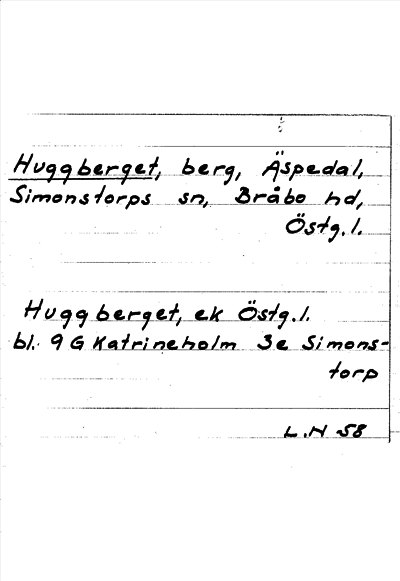 Huggberget, berg, Äspedal,
Simonstorps sn, Bråbo hd,
Östg.l.
Huggberget, ek Östg.l.
bl. 9 G Katrineholm 3e Simons-
torp
L.N 58